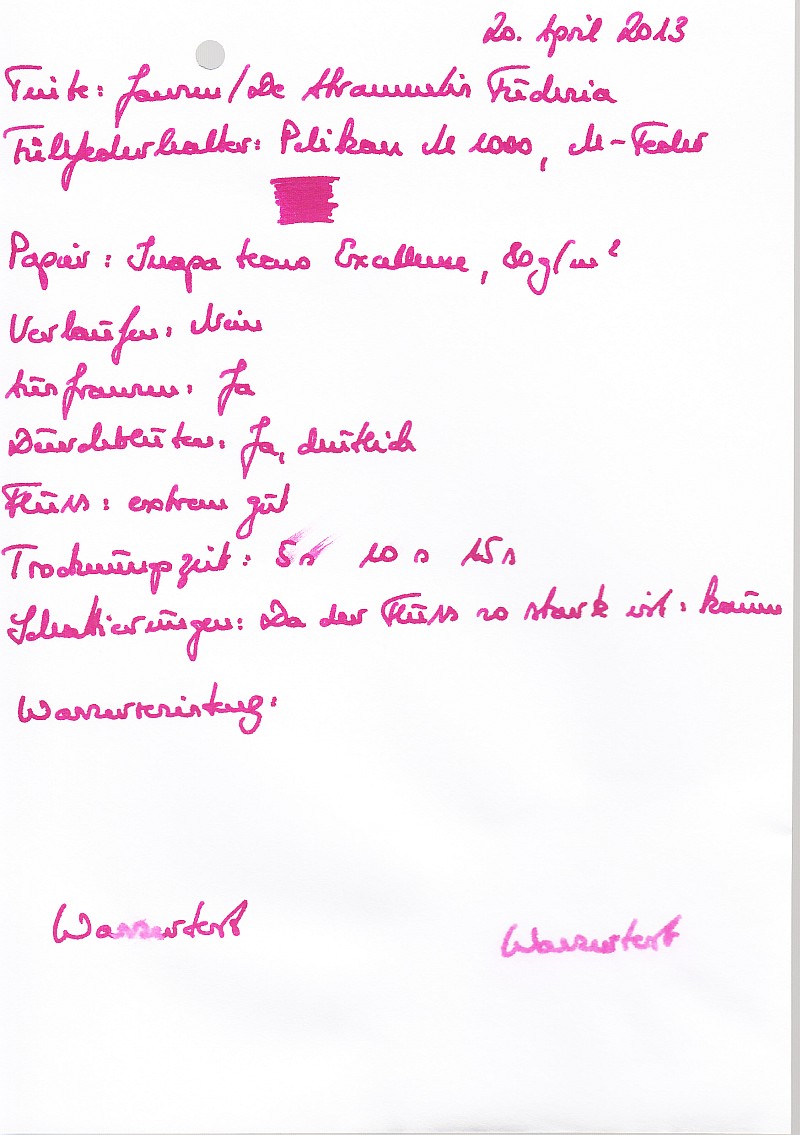 20. April 2013
Tinte: Jansen/De Atramentis Fuchsia
Füllfederhalter: Pelikan M 1000, M-Feder
Papier: Inapa tecno Excellence, 80g/m²
Verlaufen: Nein
Ausfransen: Ja
Durchbluten: Ja, deutlich
Fluss: extrem gut
Trocknungszeit: 5s 10 s 15s
Schattierungen: Da der Fluss so stark ist: kaum
Wasserresistenz:
Wassertest Wassertest